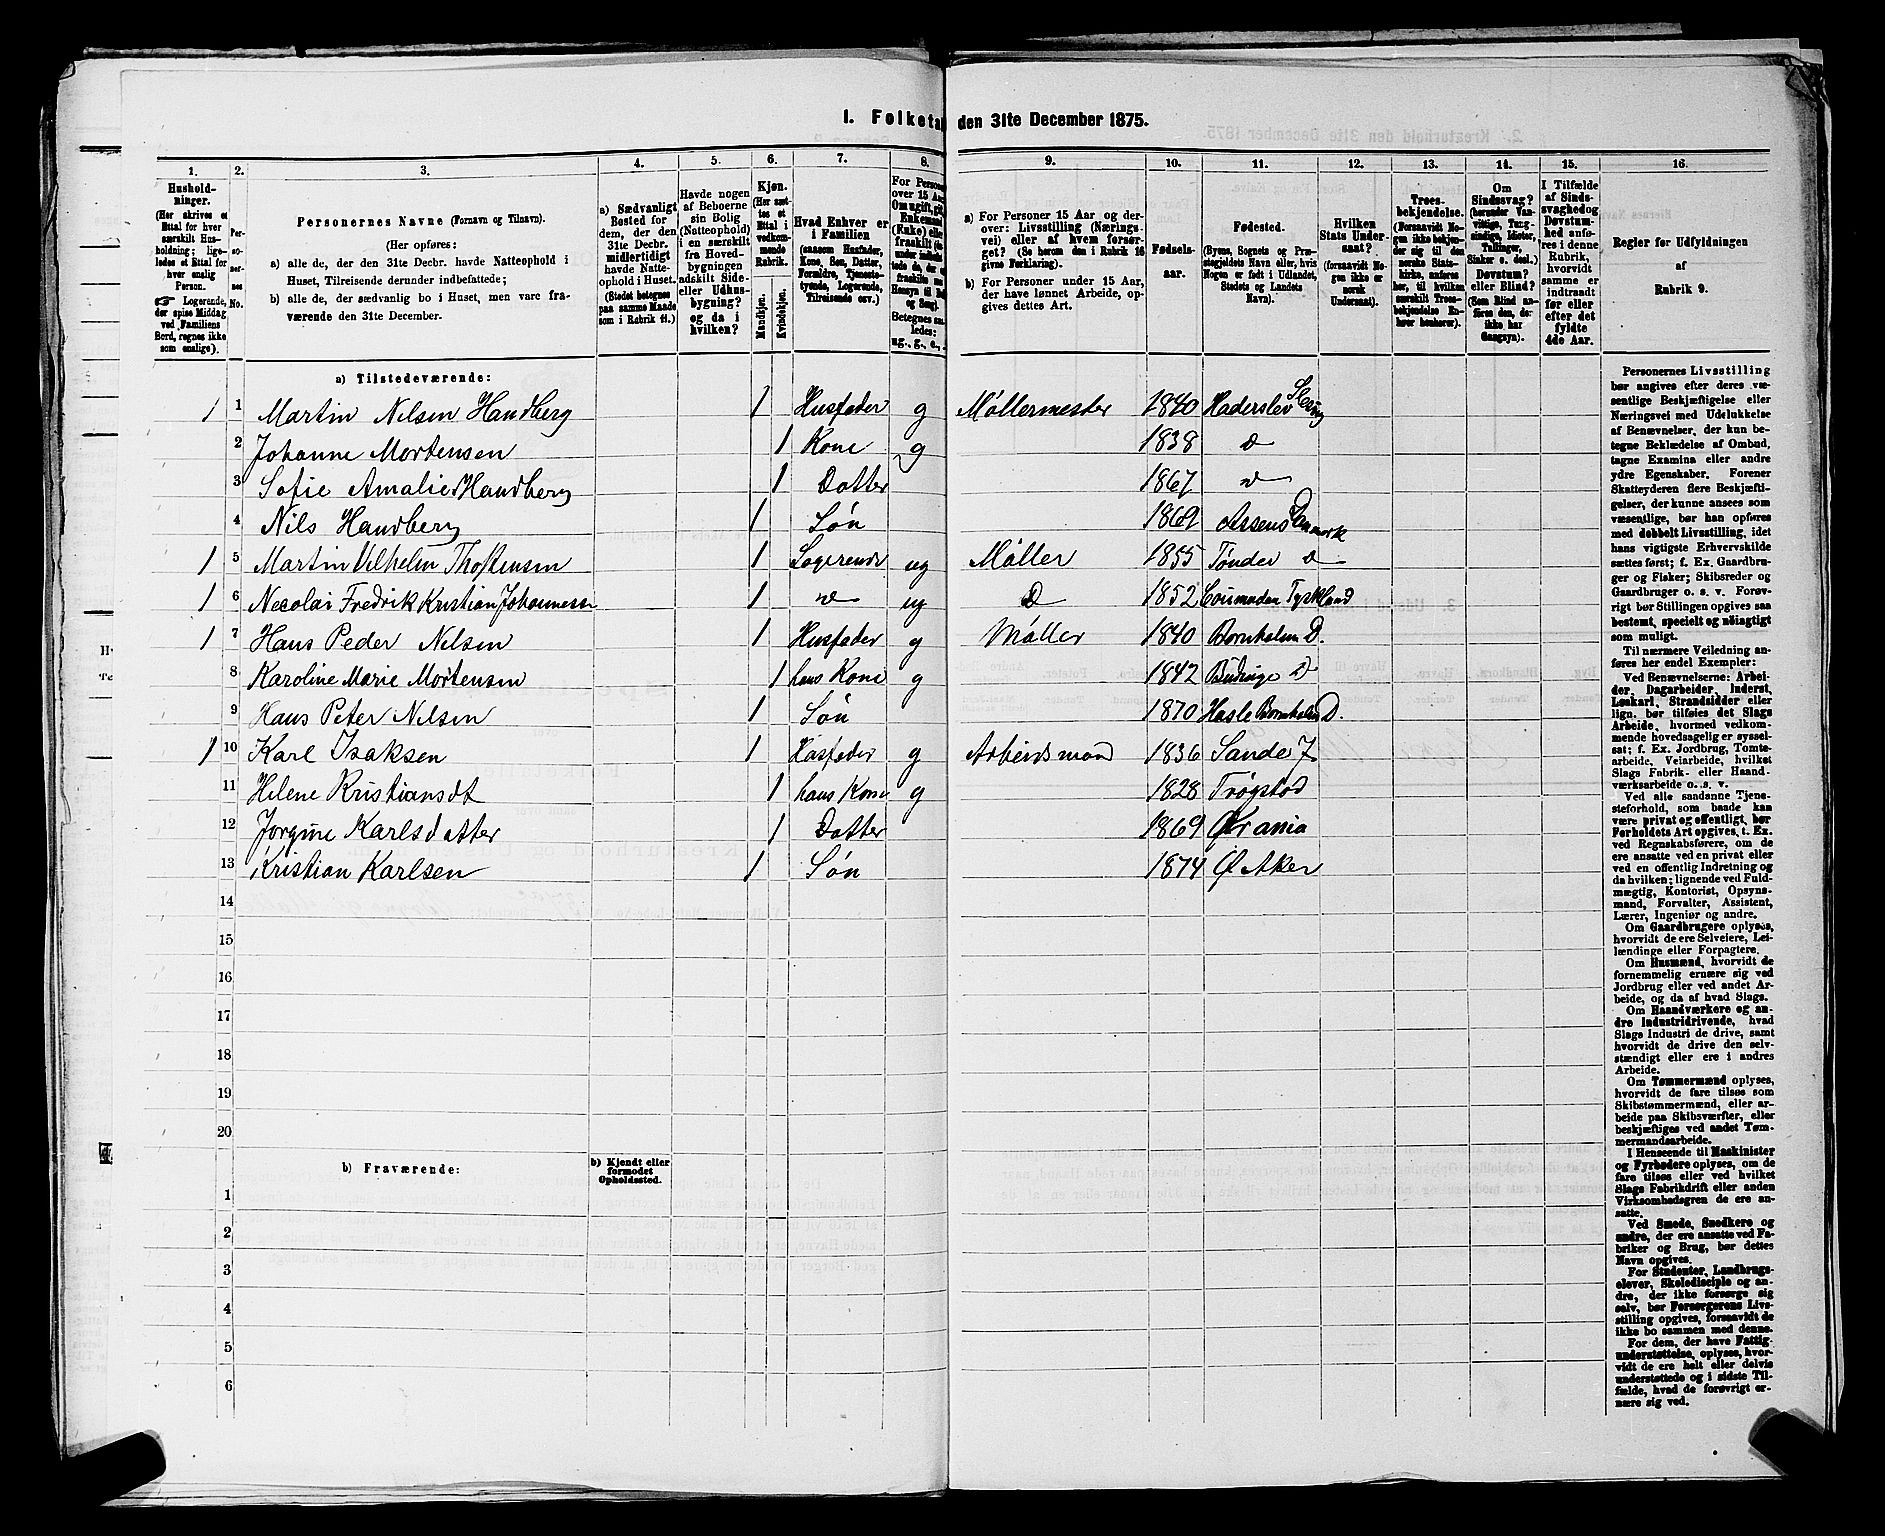 1. Folketæ den 31te December 1875.
1. 2. 3. 4. 5. 6. 7. 8. 9. 10. 11. 12. 13. 14. 15. 16.
Hushold-
ninger.
(Her skrives et
Ettal for hver
særskilt Hus-
holdning; lige-
ledes et Ettal for
hver enslig
Person.
☞ Logerende,
der spise Middag
ved Familiens
Bord, regnes ikke
som enslige).
Per-
so-
ner-
nes
No.
Personernes Navne (Fornavn og Tilnavn).
(Her opføres:
a) alle de, der den 31te Decbr. havde Natteophold i
Huset, Tilreisende derunder indbefattede;
b) alle de, der sædvanlig bo i Huset, men vare fra-
værende den 31te December.
a) Sædvanligt
Bosted for
dem, der den
31te Decbr.
midlertidigt
havde Natte-
ophold i Huset.
(Stedet betegnes
paa samme Maade
som i Rubrik 11.)
Havde nogen
af Beboerne
sin Bolig
(Natteophold)
i en særskilt
fra Hoved-
bygningen
adskilt Side-
eller Udhus-
bygning?
og da i
hvilken?
Kjøn.
(Her sæt-
tes et
Ettal i
vedkom-
mende
Rubrik.
Mandkjøn.
Kvindekjøn.
Hvad Enhver er
i Familien
(saasom Husfader,
Kone, Søn, Datter,
Forældre, Tjeneste-
tyende, Logerende,
Tilreisende osv.)
For Persone
over 15 Aar
Om ugift, gift
Enkemand
(Enke) eller
fraskilt
Betegnes saa-
ledes:
ug., g., e.,
a) For Personer 15 Aar og der-
over: Livsstilling (Nærings-
vei) eller af hvem forsør-
get? (Se herom den i Rubrik 16
givne Forklaring).
b) For Personer under 15 Aar,
der have lønnet Arbeide, op-
gives dettes Art.
Fødsels-
aar.
Fødested.
(Byens, Sognets og Præ-
stegjeldets Navn eller, hvis
Nogen er født i Udlandet,
Stedets og Landets
Navn).
Hvilken
Stats Under-
saat?
(forsaavidt No-
gen ikke er
norsk
Undersaat).
Troes-
bekjendelse.
(Forsaavidt No-
gen ikke bekjen-
der sig til den
norske Stats-
kirke, anføres
her, til hvilken
særskilt Troes-
bekjendelse En-
hver henhører).
Om
Sindssvag?
(herunder Van-
vittige, Tung-
sindige, Idioter,
Tullinger,
Sinker o. desl.)
Døvstum?
eller Blind?
(Som Blind an-
føres den, der
ikke har
Gangsyn).
I Tilfælde
af Sinds-
svaghed og
Døvstum-
hed anfø-
res i denne
Rubrik,
hvorvidt
samme er
indtraadt
før eller
efter det
fyldte
4de Aar.
Regler for Udfyldningen
af
Rubrik 9.
a) Tilstedeværende:
1 1 Martin Nilsen Handberg 1 Husfader g Møllermester 1840 Haderslev
2 Johanne Mortensen 1 Kone g 1838 D
3 Sofie Amalie Handberg 1 Datter 1867
4 Nils Handberg 1 Søn 1869 Denmark
1 5 Martin Vilhelm 1 Logerende ug Møller 1855 Tønder D
1 6 Necolai Fredrik Kristian Johannessn 1 ug D 1852 Tyskland
1 7 Hans Peder Nilsen 1 Husfader g Møller 1840 Bornholm D.
8 Karoline Marie Mortensen 1 hans Kone g 1842 D
9 Hans Peter Nilsen 1 Søn 1870 Hasle Bornholm D.
1 10 Karl Isaksen 1 Husfader g Arbeidsmand 1836 Sande
11 Helene Kristiansdt 1 hans Kone g 1828 Trøgstad
12 Jorgine Karlsdatter 1 Datter 1869 Krania
13 Kristian Karlsen 1 Søn 1874 Ø Aker
14
15
16
17
18
19
20
b) Fraværende:
b) Kjendt eller
formodet
Opholdssted.
1
2
3
4
5
6
Personernes Livsstilling
bør angives efter deres væ-
sentlige Beskjæftigelse eller
Næringsvei med Udelukkelse
af Benævnelser, der kun be-
tegne Beklædelse af Ombud,
tagne Examina eller andre
ydre Egenskaber. Forener
Skatteyderen flere Beskjæfti-
gelser, der kunne ansees som
væsentlige, bør han opføres
med dobbelt Livsstilling, idet
hans vigtigste Erhvervskilde
sættes først; f. Ex. Gaardbru-
ger og Fisker; Skibsreder og
Gaardbruger o. s. v. Forøv-
rigt bør Stillingen opgives saa
bestemt, specielt og nøiagtigt
som muligt.
Til nærmere Veiledning an-
føres her endel Exempler:
Ved Benævnelserne: Arbei-
der, Dagarbeider, Inderst,
Løskarl, Strandsidder eller
lign. bør tilføies det Slags
Arbeide, hvormed vedkom-
mende hovedsagelig er syssel-
sat; f. Ex. Jordbrug, Tomte-
arbeide, Veiarbeide, hvilket
Slags Fabrik- eller Haand-
værksarbeide o. s. v.
Ved alle saadanne Tjene-
steforhold, som baade kan
være privat og offentligt, bør
Forholdets Art opgives, t. Ex.
ved Regnskabsførere, om de
ere ansatte ved en privat eller
ved en offentlig Indretning og
da hvilken; lignende ved Fuld-
mægtig, Kontorist, Opsyns-
mand, Forvalter, Assistent,
Lærer, Ingeniør og andre.
Om Gaardbrugere oplyses,
hvorvidt de ere Selveiere, Lei-
lændinge eller Forpagtere.
Om Husmænd, hvorvidt de
fornemmelig ernære sig ved
Jordbrug eller ved andet Ar-
beide, og da af hvad Slags.
Om Haandværkere og an-
dre Industridrivende, hvad
Slags Industri de drive, samt
hvorvidt de drive den selv-
stændigt eller ere i andres
Arbeide.
Om Tømmermænd oplyses,
hvorvidt de fare tilsøs som
Skibstømmermænd, eller ar-
beide paa Skibsværfter, eller
beskjæftiges ved andet Tøm-
mermandsarbeide.
I Henseende til Maskinister
og Fyrbødere oplyses, om de
fare tilsøs eller ved hvilket
Slags Fabrikdrift eller anden
Virksomhedsgren de ere an-
satte.
Ved Smede, Snedkere og
andre, der ere ansatte ved Fa-
briker og Brug, bør dettes
Navn opgives.
For Studenter, Landbrugs-
elever, Skoledisciple og an-
dre, der ikke forsørge sig
selv, bør Forsørgerens Livs-
stilling opgives, forsaavidt de
ikke bo sammen med denne.
For dem, der have Fattig-
understøttelse, oplyses, hvor-
vidt de ere helt eller delvis
understøttede og i sidste Til-
fælde, hvad de forøvrigt er-
nære sig ved.